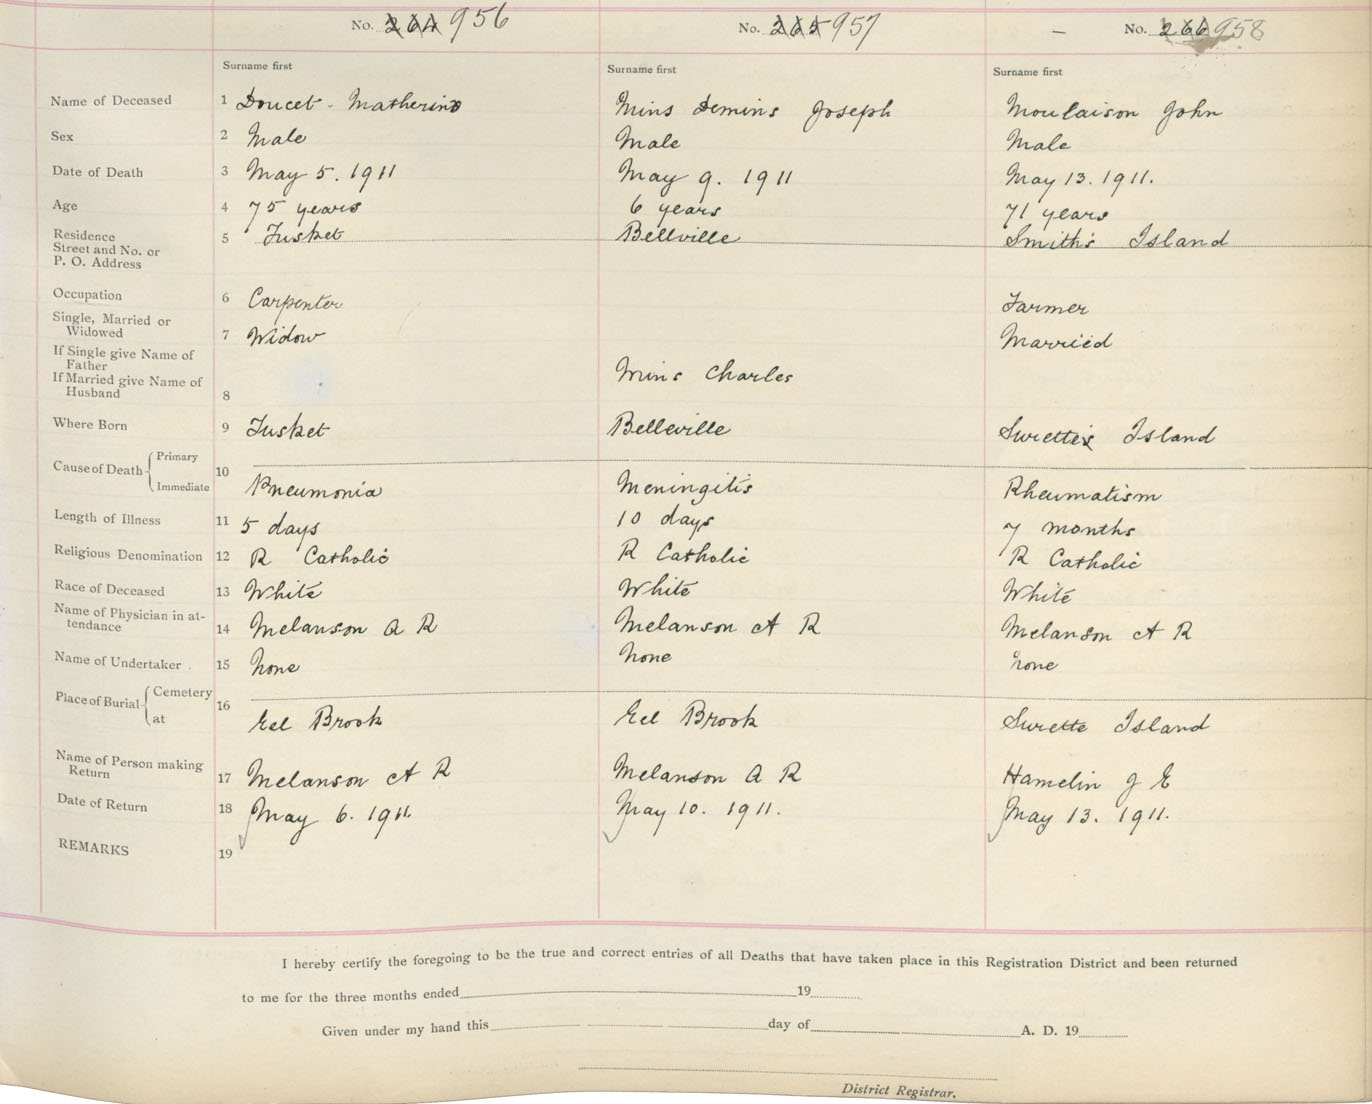 No. 264 956 No. 265 957 – No. 266 958
Surname first Surname first Surname first
Name of Deceased 1 Doucet - Matherino Mins Demins Joseph Moulaison John
Sex 2 Male Male Male
Date of Death 3 May 5. 1911 May 9. 1911 May 13. 1911.
Age 4 75 years 6 years 71 years
Residence
Street and No. or 5 Tusket Bellville Smith's Island
P. O. Address
Occupation 6 Carpenter Farmer
Single, Married or
Widowed 7 Widow Married
If Single give Name of
Father
If Married give Name of Mins Charles
Husband 8
Where Born 9 Tusket Belleville Surette's Island
Cause of Death Primary 10
Immediate Pneumonia Meningitis Rheumatism
Length of Illness 11 5 days 10 days 7 months
Religious Denomination 12 R Catholic R Catholic R Catholic
Race of Deceased 13 White White White
Name of Physician in at-
tendance 14 Melanson A R Melanson A R Melanson A R
Name of Undertaker . 15 None None None
Place of Burial Cemetery 16
at Eel Brook Eel Brook Surette Island
Name of Person making
Return 17 Melanson A R Melanson A R Hamelin J E
Date of Return 18 May 6. 1911. May 10. 1911. May 13. 1911.
REMARKS 19
I hereby certify the foregoing to be the true and correct entries of all Deaths that have taken place in this Registration District and been returned
to me for the three months ended 19
Given under my hand this day of A. D. 19
District Registrar.